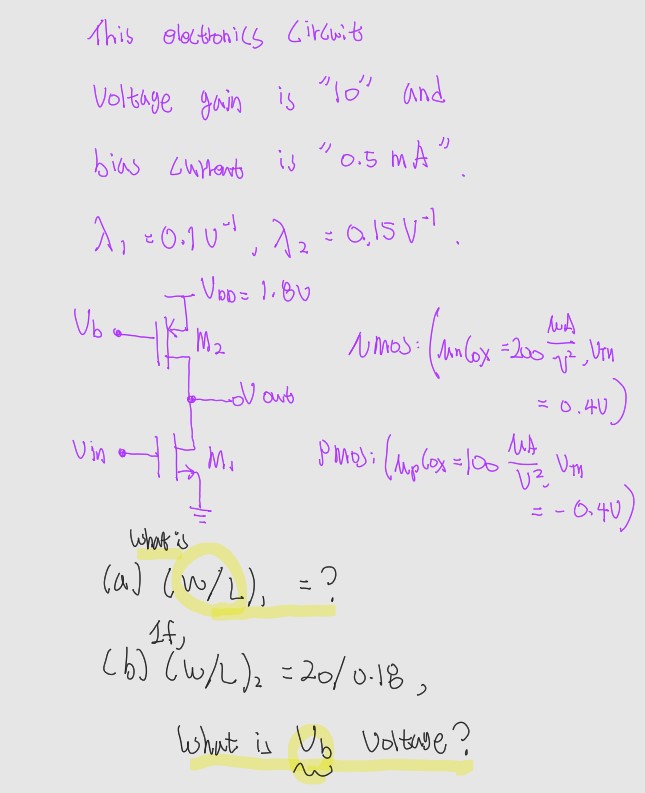 This electronics Circuits
Voltage gain is "10" and
bias current is "0.5 mA".
λ₁ = 0.1 V⁻¹, λ₂ = 0.15 V⁻¹.
VDD = 1.8V
Vb
M₂
NMOS: (μnCox = 200 μA/V², VTH
= 0.4V)
Vout
Vin
M₁
PMOS: (μpCox = 100 μA/V², VTH
= -0.4V)
What is
(a) (W/L)₁ = ?
If,
(b) (W/L)₂ = 20/0.18,
What is Vb Voltage?